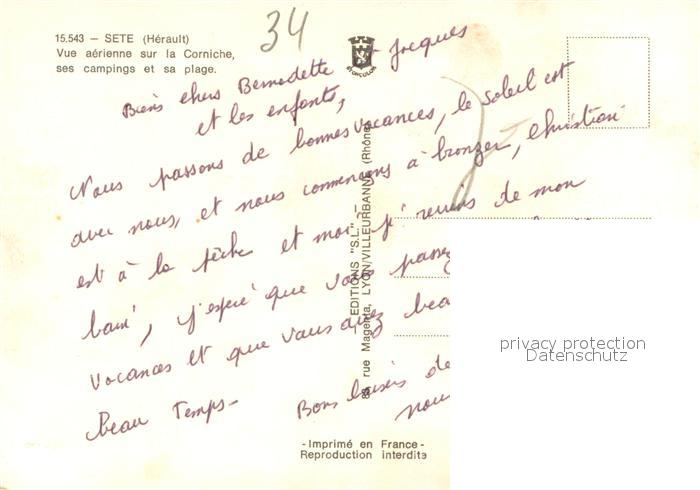 15.543 – SETE (Hérault)
Vue aérienne sur la Corniche,
ses campings et sa plage.
34
STORCOLOR
Biens chers Bernadette - Jacques
et les enfants,
Nous passons de bonnes vacances, le soleil est
avec nous, et nous commençons à bronzer, Christian
est à la pêche et moi j'reviens de mon
bain, j'espére que vous passez
vacances et que vous avez beau
beau Temps-
Bons baisers de
nous
— EDITIONS "S.L." —
rue Magenta, LYON/VILLEURBANNE (Rhône)
-Imprimé en France-
Reproduction interdite
privacy protection
Datenschutz